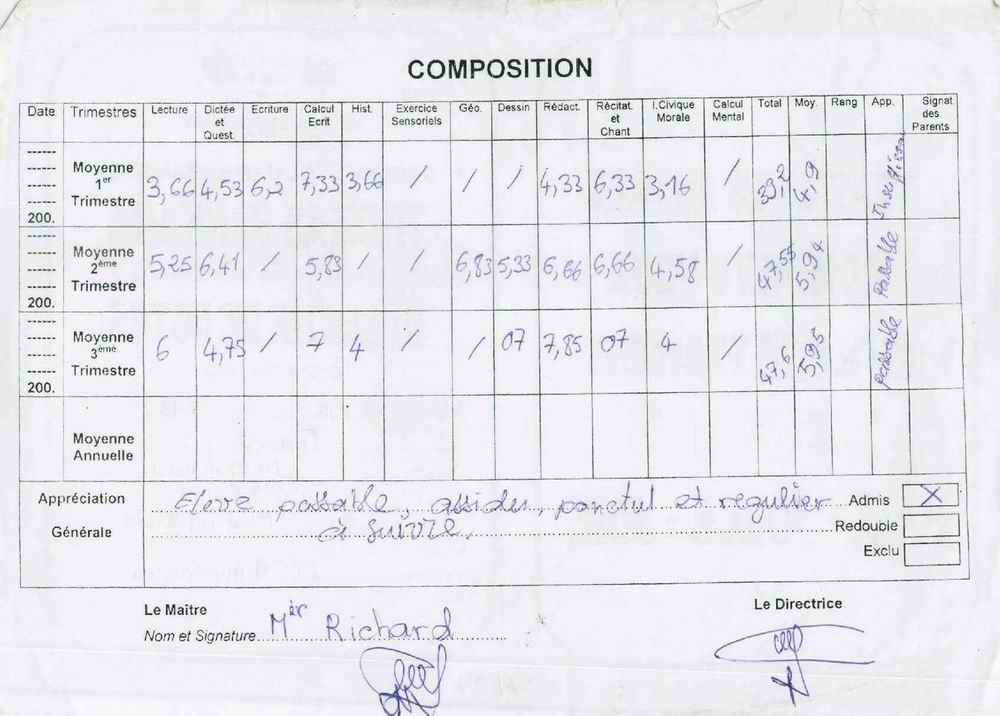 COMPOSITION
Date Trimestres Lecture Dictée et Quest. Ecriture Calcul Ecrit Hist. Exercice Sensoriels Géo. Dessin Rédact. Récitat. et Chant I.Civique Morale Calcul Mental Total Moy. Rang App. Signat des Parents
------ 200. Moyenne 1er Trimestre 3,66 4,53 6,2 7,33 3,66 / / / 4,33 6,33 3,16 / 39,2 4,9
------ 200. Moyenne 2ème Trimestre 5,25 6,41 / 5,83 / / 6,83 5,33 6,66 6,66 4,58 / 47,55 5,94 Passable
------ 200. Moyenne 3ème Trimestre 6 4,75 / 7 4 / / 07 7,85 07 4 47,6 5,95 passable
Moyenne Annuelle
Appréciation Eleve passable, assidu, ponctul et regulier Admis X
Générale à suivre. Redouble
Exclu
Le Maître
Le Directrice
Nom et Signature Mèr Richard